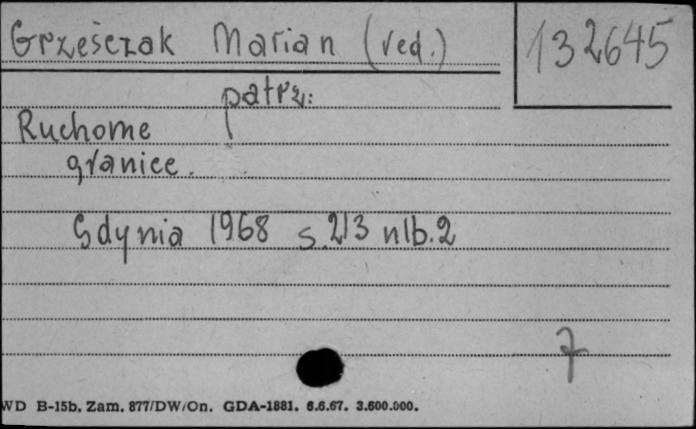 Grześczak Marian (red.)
132645
patrz:
Ruchome
granice.
Gdynia 1968 s.213 nlb.2
7
WD B-15b. Zam. 877/DW/On. GDA-1881. 6.6.67. 3.600.000.